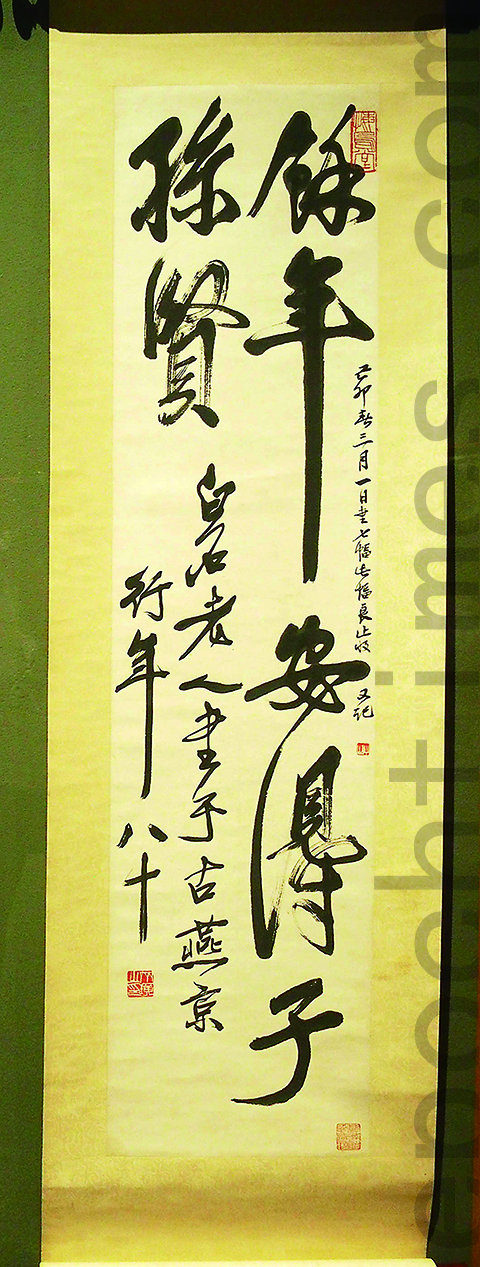 餘年安得子
孫賢
白石老人書于古燕京
行年八十
己卯春三月一日書七幅此幅良止收 又記
epochtimes.com